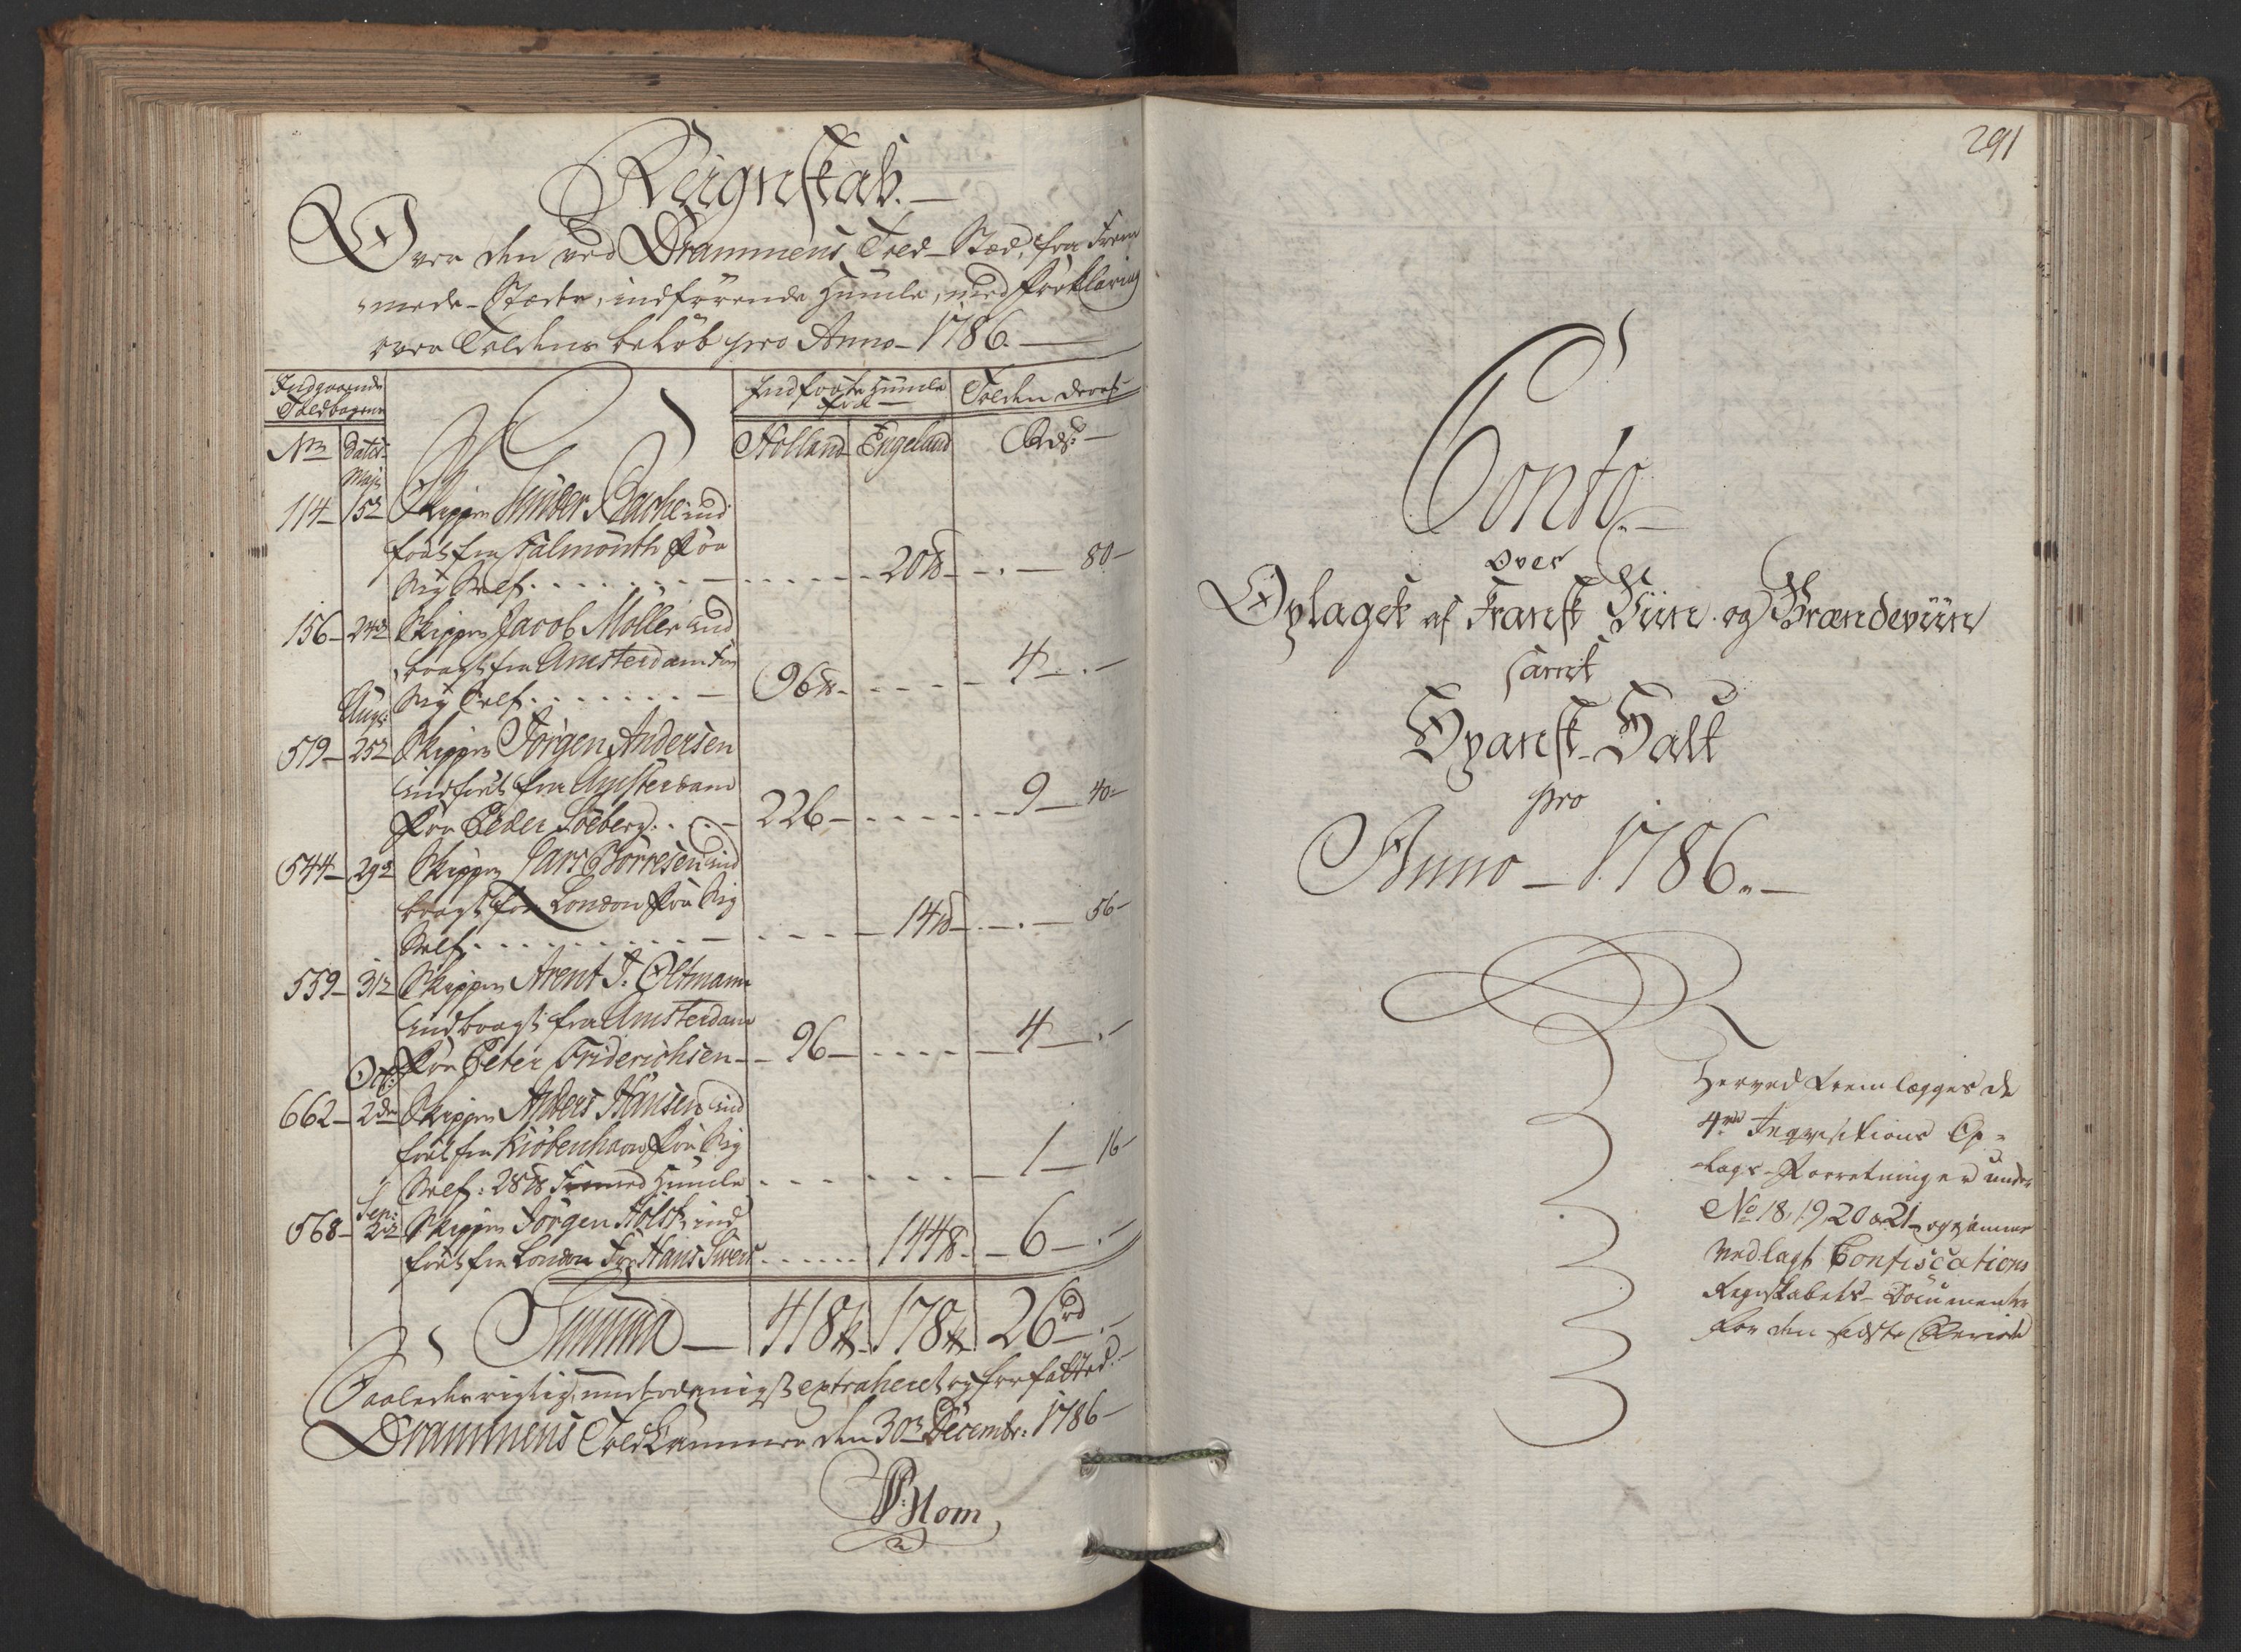 Reignskab.
Over den ved Drammens Told-Stæd, fra Frem
mede-Stæder, indførende Humle, med Forklaring
over Toldens beløb pro Anno 1786.
Indgaaende Toldbogens
Indførte Humle fra
Tolden deraf
No
Dater
Holland
Engeland
Rdr
Maji
114 15de Skipper Sunder Bache ind
ført fra Falmouth for
Sig Self 20 lb 80
156 24de Skipper Jacob Møller ind
bragt fra Amsterdam for
Sig Self 96 lb 4
Aug:
519 25de Skipper Jørgen Andersen
indført fra Amsterdam
for Peder Søeberg 226 9 40
544 29de Skipper Lars Borresen ind
bragt fra London for Sig
Self 14 lb 56
559 31te Skipper Arent J: Oltmann
indbragt fra Amsterdam
for Peter Friderichsen 96 4
Oct:
662 2den Skipper Anders Hansen ind
ført fra Kiøbenhavn for Sig
Self: 28 lb Fremmed Humle 1 16
Sep:
568 Skipper Jørgen Holst, ind
ført fra London for Hans 144 lb 6
Summa 418 lb 178 lb 26 rd
Saaledes rigtig, underdanigst extraheret og forfatted.
Drammens Toldkammer den 30te Decembr: 1786
Blom
291
Conto
over
Oplaget af Fransk Viin og Brændeviin
samt
Spansk Salt
pro
Anno 1786.
Herved fremlægges de
4re Inqvisitions Op-
lags-Forretninger under
No 18, 19, 20 & 21, og
vedlagt Confiscations
Regnskabets Documenter
for den sidste Periode